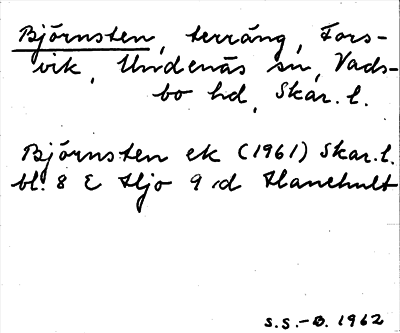 Björnsten, terräng, Fors-
vik, Undenäs sn, Vads-
bo hd, Skar. l.
Björnsten ek (1961) Skar. l.
bl. 8 E Hjo 9 d Hanehult
S.S.-B. 1962